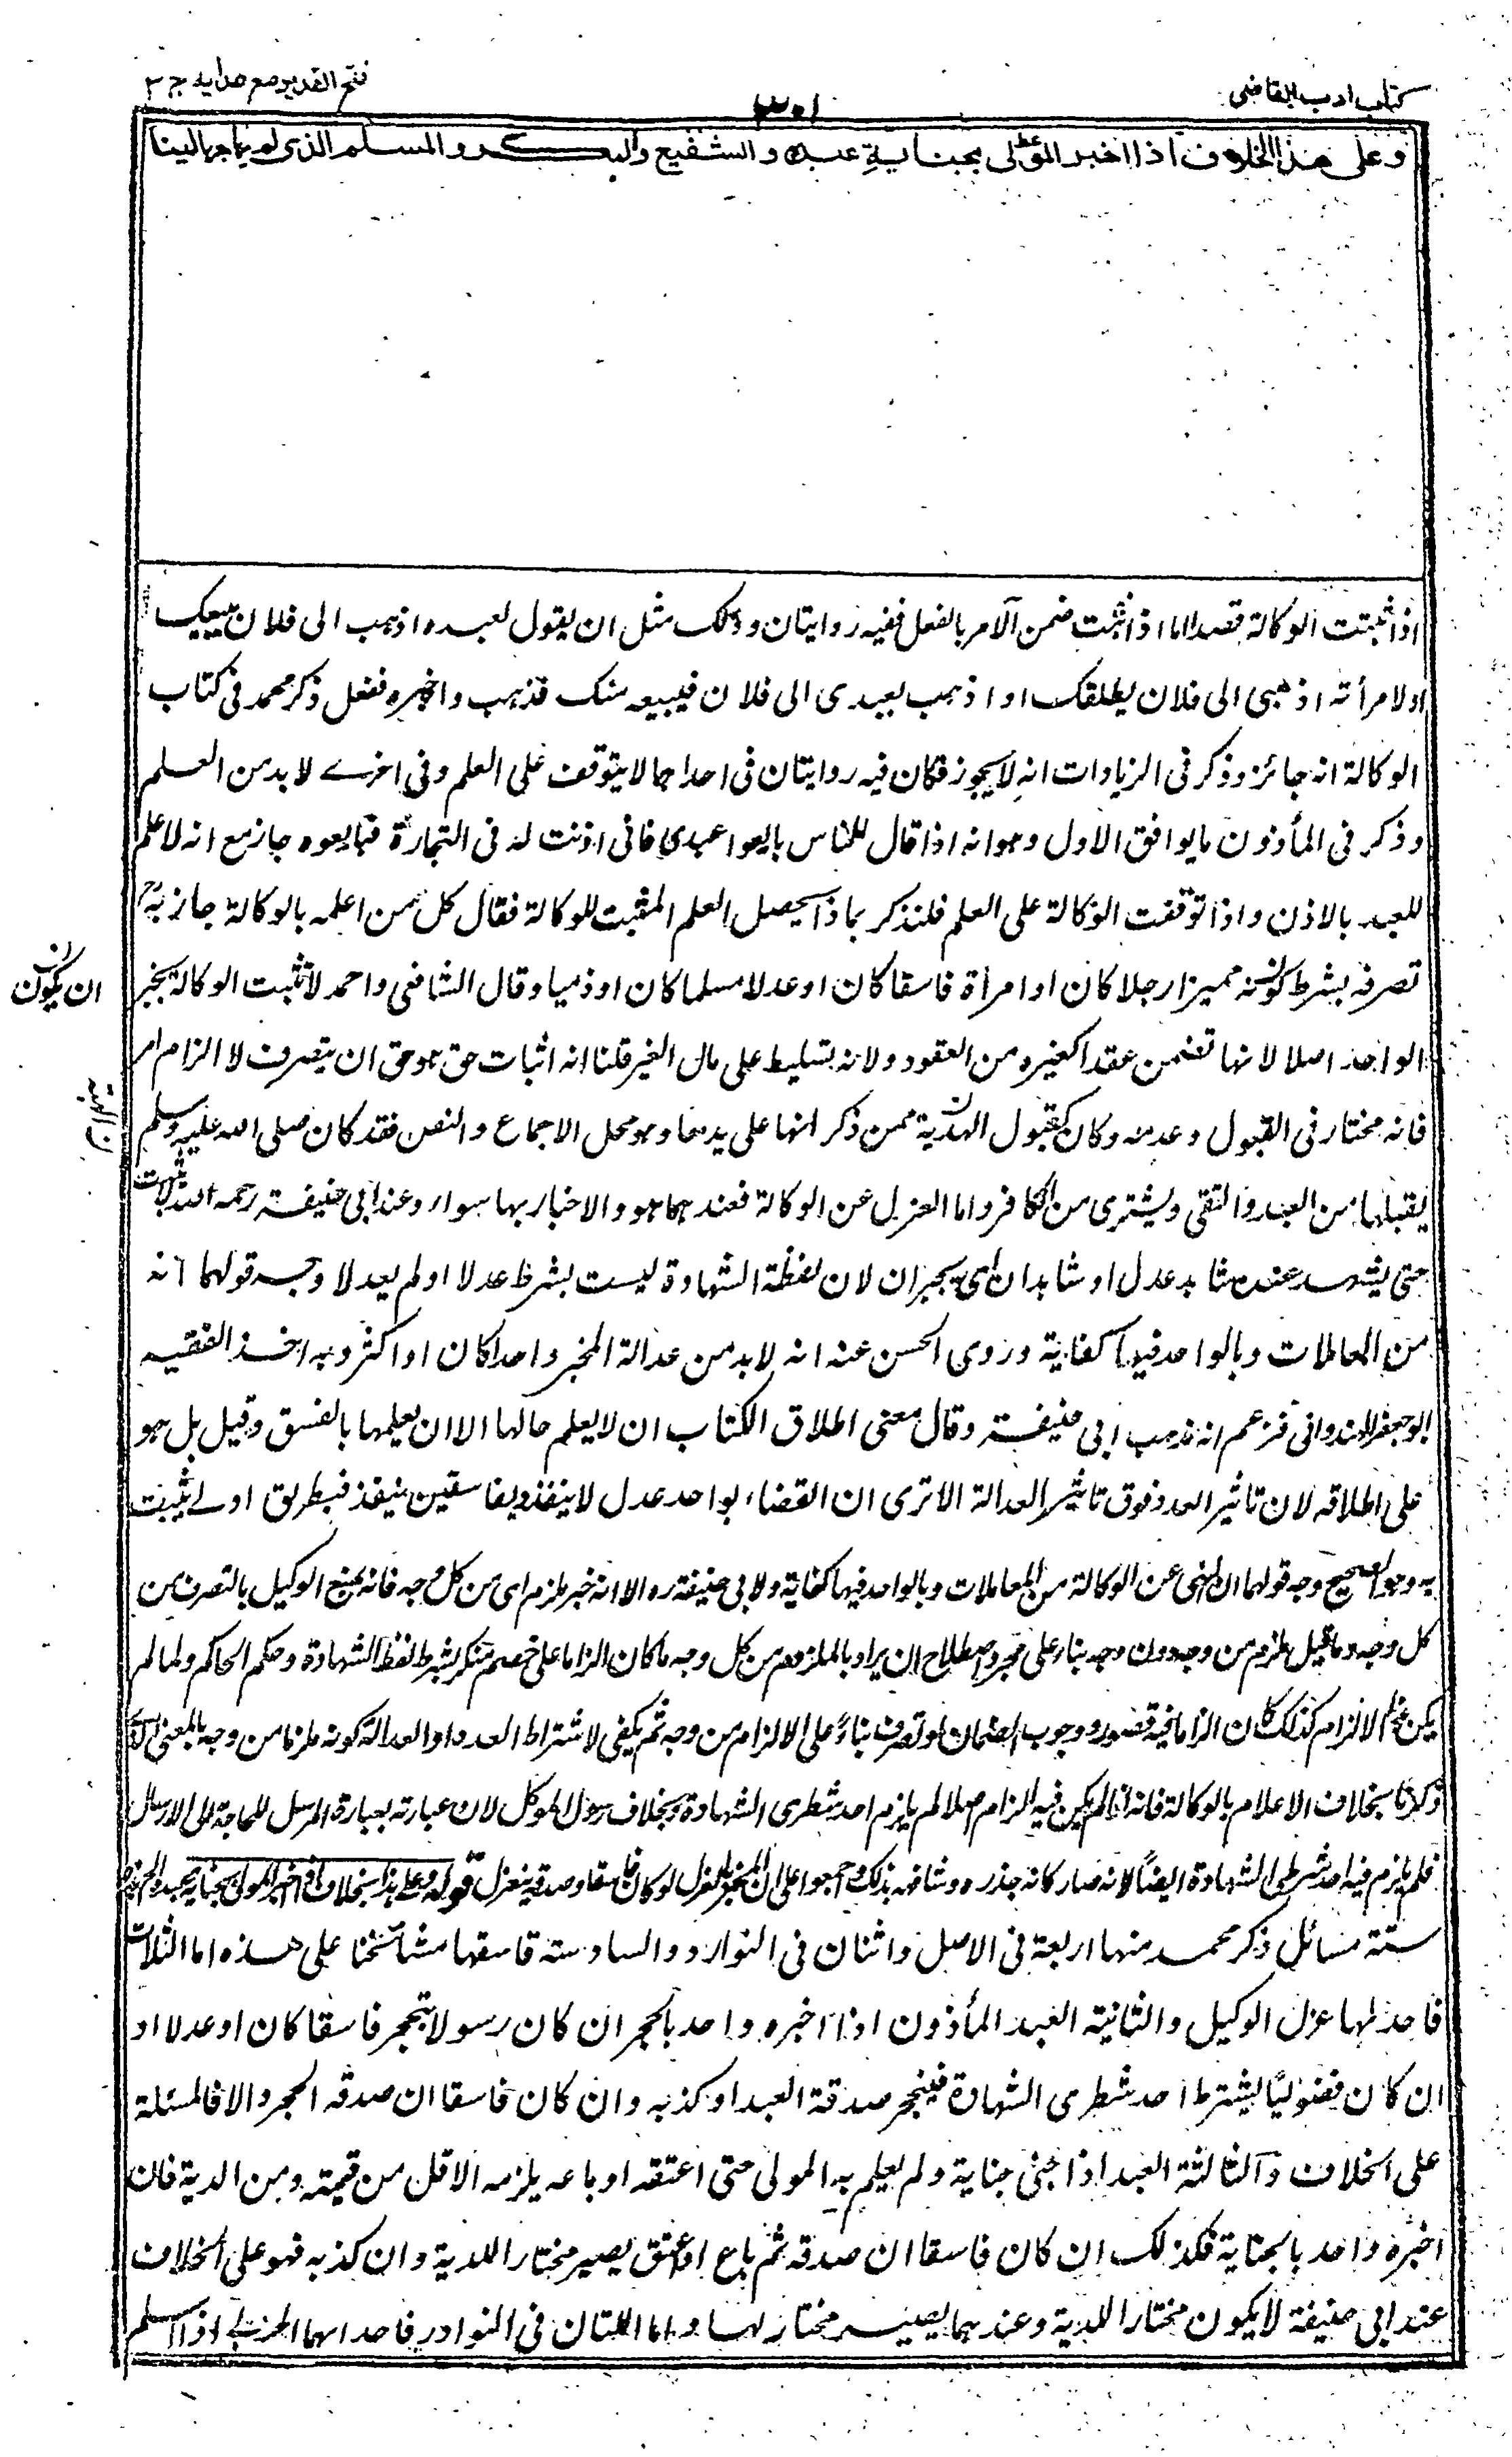 كتاب ادب القاضى
٣٠١
فتح القدير مع هدايه ج ٣
وعلى هذا الخلاف اذا اخبر المولى بجناية عبده والشفيع والبكر والمسلم الذى لم يهاجر الينا
اذا ثبتت الوكالة قصدا اما اذا ثبتت ضمن الآمر بالفعل ففيه روايتان وذلك مثل ان يقول لعبده اذهب الى فلان يبيعك
او لامرأته اذهبى الى فلان يطلقك او اذهب بعبدى الى فلان فيبيعه منك فذهب واخبره ففعل ذكر محمد فى كتاب
الوكالة انه جائز وذكر فى الزيادات انه لا يجوز فكان فيه روايتان فى احداهما لا يتوقف على العلم وفى اخرى لا بد من العلم
وذكر فى المأذون ما يوافق الاول وهو انه اذا قال للناس بايعوا عبدى فانى اذنت له فى التجارة فبايعوه جاز مع انه لا علم
للعبد بالاذن واذا توقفت الوكالة على العلم فلنذكر بماذا يحصل العلم المثبت للوكالة فقال كل من اعلمه بالوكالة جاز به
تصرفه بشرط كونه مميزا رجلا كان او امرأة فاسقا كان او عدلا مسلما كان او ذميا وقال الشافعى واحمد لا تثبت الوكالة بخبر
ان يكون
الواحد اصلا لانها تضمن عقدا كغيره من العقود ولانه تسليط على مال الغير قلنا انه اثبات حق هو حق ان يتصرف لا الزام امر
فانه مختار فى القبول وعدمه وكان كقبول الهدية ممن ذكر انها على يدها وهو محل الاجماع والنص فقد كان صلى الله عليه وسلم
يقبلها من العبد والتقى ويشترى من الكافر واما العزل عن الوكالة فعندهما هو والاخبار بها سواء وعند ابى حنيفة رحمه الله لا يثبت
حتى يشهد عنده شاهد عدل او شاهدان اى يخبران لان لفظة الشهادة ليست بشرط عدلا او لم يعدلا وجه قولهما انه
من المعاملات وبالواحد فيها كفاية وروى الحسن عنه انه لا بد من عدالة المخبر واحدا كان او اكثر وبه اخذ الفقيه
ابو جعفر الهندوانى فزعم انه مذهب ابى حنيفة وقال معنى اطلاق الكتاب ان لا يعلم حالها الا ان يعلمها بالفسق وقيل بل هو
على اطلاقه لان تاثير العدد فوق تاثير العدالة الا ترى ان القضاء بواحد عدل لا ينفذ وبفاسقين ينفذ فبطريق اولى يثبت
به وهو الصحيح وجه قولهما ان النهى عن الوكالة من المعاملات وبالواحد فيها كفاية ولابى حنيفة ره الا انه خبر ملزم اى من كل وجه فانه يمنع الوكيل بالتصرف من
كل وجه وما قيل ملزم من وجه دون وجه بناء على مجرد اصطلاح ان يراد بالملزم من كل وجه ما كان الزاما على خصم منكر يشترط لفظ الشهادة وحكم الحاكم ولما لم
يكن الالزام كذلك كان الزاما فيه قصور ووجوب الضمان لو تصرف بناء على الالزام من وجه ثم يكفى لاشتراط العدد او العدالة كونه ملزما من وجه بالمعنى الذى
ذكرنا بخلاف الاعلام بالوكالة فانه لما لم يكن فيه الزام اصلا لم يلزم احد شطرى الشهادة وبخلاف رسول الموكل لان عبارته بعبارة المرسل للحاجة الى الارسال
فلم يلزم فيه احد شطرى الشهادة ايضا لانه صار كانه حذره وشافهه بذلك واجمعوا على ان المخبر بالعزل لو كان فاسقا وصدقه ينعزل قوله وعلى هذا الخلاف اذا اخبر المولى بجناية عبده
ستة مسائل ذكر محمد منها اربعة فى الاصل واثنان فى النوادر والسادسة قاسها مشائخنا على هذه اما الثلاث
فاحدها عزل الوكيل والثانية العبد المأذون اذا اخبره واحد بالحجر ان كان رسولا يتحجر فاسقا كان او عدلا او
ان كان فضوليا يشترط احد شطرى الشهادة فينحجر صدقة العبد او كذبه وان كان فاسقا ان صدقه انحجر والا فالمسئلة
على الخلاف والثالثة العبد اذا جنى جناية ولم يعلم به المولى حتى اعتقه او باعه يلزمه الاقل من قيمته ومن الدية فان
اخبره واحد بالجناية فكذلك ان كان فاسقا ان صدقه ثم باع او اعتق يصير مختارا للدية وان كذبه فهو على الخلاف
عند ابى حنيفة لا يكون مختارا للدية وعندهما يصير مختارا لها واما اللتان فى النوادر فاحداهما الحربى اذا اسلم